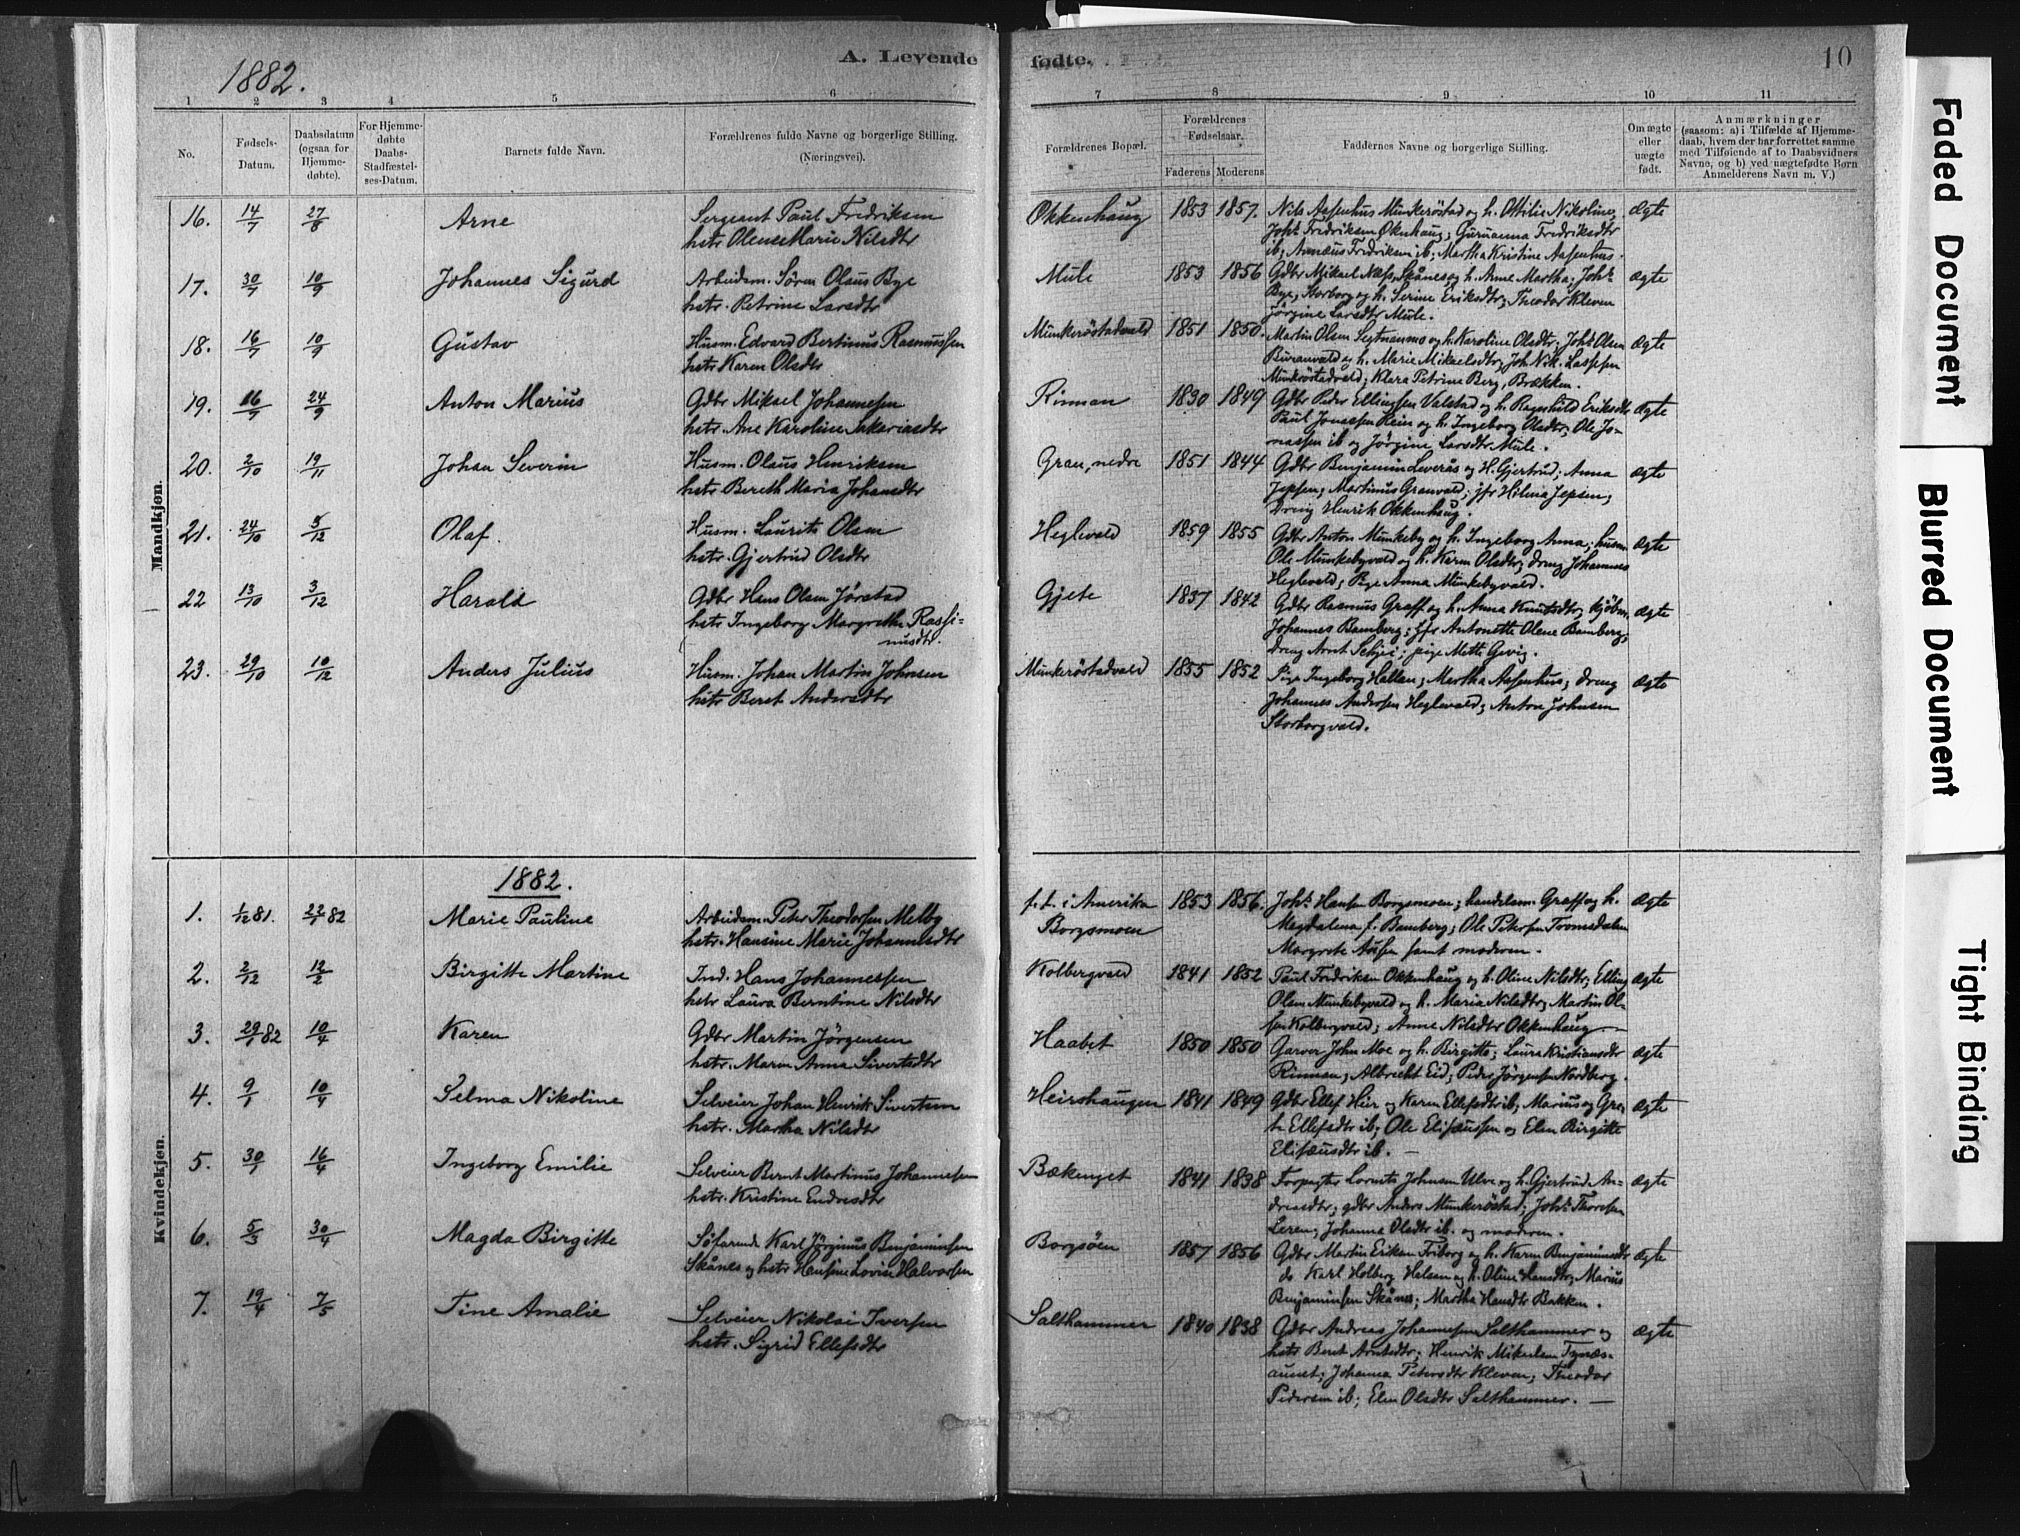 1882.
A. Levende
fødte.
10
1 2 3 4 5 6 7 8 9 10 11
No.
Fødsels-
Datum.
Daabsdatum
(ogsaa for
Hjemme-
døbte).
For Hjemme-
døbte
Daabs-
Stadfæstel-
ses-Datum.
Barnets fulde Navn.
Forældrenes fulde Navne og borgerlige Stilling.
(Næringsvei).
Forældrenes Bopæl.
Forældrenes
Fødselsaar.
Faderens Moderens
Faddernes Navne og borgerlige Stilling.
Om ægte
eller
uægte
født.
Anmærkninger
(saasom: a) i Tilfælde af Hjemme-
daab, hvem der har forrettet samme
med Tilføiende af to Daabsvidners
Navne, og b) ved uægtefødte Børn
Anmelderens Navn m. V.)
Mandkjøn.
16. 14/7 27/8 Arne Sergeant Paul Fredriksen Okkenhaug 1853 1857. Nils Aasenhus Munkerøstad og h. Ottilie Nikoline; ægte
hstr Olense Marie Nilsdtr Johs Fredriksen Okenhaug; Guruanna Fredriksdtr
ib; Annæus Fredriksen ib; Martha Kristine Aasenhus.
17. 30/7 10/9 Johannes Sigurd Arbeidsm. Søren Olaus Bye Mule 1853 1856 Gdbr Mikael Næss, Skånes og h. Anne Martha; Johs ægte
hstr. Petrine Larsdtr Bye, Storborg og h. Serine Eriksdtr; Theodor Kleven
Jørgine Larsdtr Mule.
18. 16/7 10/9 Gustav Husm. Edvard Bertinus Rasmussen Munkerøstadvald 1851 1850. Martin Olsen Segtnanmo og h. Karoline Olsdtr; Johs Olsen ægte
hstr Karen Olsdtr Buranvald og h. Marie Mikaelsdtr; Joh. Nik. Lassesen
Munkrøstadvald; Klara Petrine Berg, Brækken.
19. 16/7 24/9 Anton Marius Gdbr Mikael Johannesen Rinnan 1830 1849 Gdbr Peder Ellingsen Valstad og h. Ragnhild Eriksdtr ægte
hstr. Ane Karoline Sakariasdtr Paul Jonassen Rein og h. Ingeborg Olsdtr; Ole Jo-
nassen ib og Jørgine Larsdtr Mule.
20. 2/10 19/11 Johan Severin Husm. Olaus Henriksen Gran, nedre 1851 1844 Gdbr Benjamin Leverås og H. Gjertrud; Anna ægte
hstr Bereth Maria Johansdtr Jepsen; Martinus Granvald; jfr Hilma Jepsen;
Dreng Henrik Okkenhaug.
21. 24/10 3/12 Olaf. Husm. Laurits Olsen Heglevald 1859 1855 Gdbr Anton Munkeby og h. Ingeborg Anna; husm ægte
hstr. Gjertrud Olsdtr Ole Munkebyvald og h. Karen Olsdtr; dreng Johannes
Heglevald; Pige Anna Munkebyvald.
22 13/10 3/12 Harald Gdbr Hans Olsen Jørstad Gjete 1837 1842 Gdbr Rasmus Graff og h. Anna Knutsdtr; Kjøbm. ægte
hstr Ingeborg Margrethe Rassi- Johannes Bamberg; jfr Antonette Olene Bamberg;
nusdtr. dreng Arnt Schjei; pige Mette Gevig.
23. 29/10 10/12 Anders Julius Husm. Johan Martin Johnsen Munkerøstadvald 1855 1852 Pige Ingeborg Hallan; Martha Aasenhus; dreng ægte
hstr Beret Andersdtr Johannes Andersen Heglevald; Anton Johnsen
Storborgvald.
Kvindekjøn.
1882.
1. 1/12 81. 22/1 82 Marie Pauline Arbeidsm. Peter Theodorsen Melby f. t. i Amerika 1853 1856. Johs Hansen Borgsmoen; handelsm. Graff og h. ægte
hstr. Hansine Marie Johannesdtr Borgsmoen Magdalena f. Bamberg; Ole Petersen Tromsdalen
Margrete Ausen samt moderen.
2. 2/12 12/2 Birgitte Martine Ind. Hans Johannessen Kolbergvald 1841 1852 Paul Fredriksen Okkenhaug og h. Oline Nilsdtr; Elling ægte
hstr Laura Berntine Nilsdtr Olsen Munkebyvald og h. Maria Nilsdtr; Martin Ol-
sen Kolbergvald; Anne Nilsdtr Okkenhaug
3. 29/1 82 10/4 Karen Gdbr Martin Jörgensen Haabet 1850 1850 Garver John Moe og h. Birgitte; Laura Kristiansdtr ægte
hstr. Maren Anna Sivertsdtr Rinnan; Albrecht Eid; Peder Jörgensen Nordberg.
4. 9/1 10/4 Selma Nikoline Selveier Johan Henrik Sivertsen Heirshaugen 1841 1849 Gdbr Ellef Heir og Karen Ellefsdtr ib; Marius og Gre- ægte
hstr. Martha Nilsdtr te Ellefsdtr ib; Ole Elisæussen og Elen Birgitte
Elisæusdtr ib.
5. 30/1 16/4 Ingeborg Emilie Selveier Bernt Martinus Johannesen Bækenget 1841 1838 Forpagter Lornts Johnsen Ulve og h. Gjertrud An- ægte
hstr. Kristine Endresdtr dreasdtr; gdbr Anders Munkerøstad; Johs Thorsen
Leren; Johanna Olsdtr ib. og moderen.
6. 5/3 30/4 Magda Birgitte Söfarende Karl Jörginus Benjaminsen Borgsöen 1857 1856 Gdbr Martin Eriksen Friborg og h. Karen Benjaminsdtr ægte
Skånes og hstr Hansine Lovise Halvorsen do Karl Holberg Halsan og h. Oline Hansdtr; Marius
Benjaminsen Skånes; Martha Hansdtr Bakken.
7. 19/4 7/5 Tine Amalie Selveier Nikolai Iversen Salthammer 1840 1838 Gdbr Andreas Johannesen Salthammer og ægte
hstr. Sigrid Ellefsdtr hstr Beret Arntsdtr; Henrik Mikalsen Tynæs-
aunet; Johanna Petersdtr Kleven; Theodor
Pedersen ib; Elen Olsdtr Salthammer.
Faded Document
Blurred Document
Tight Binding